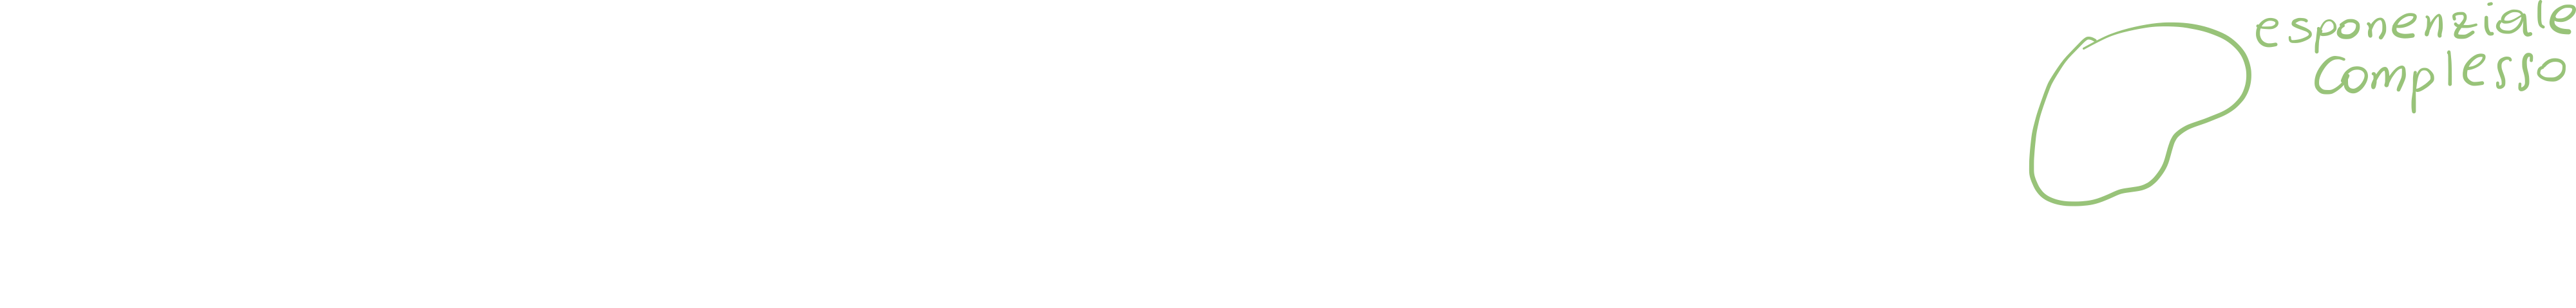 esponenziale
Complesso